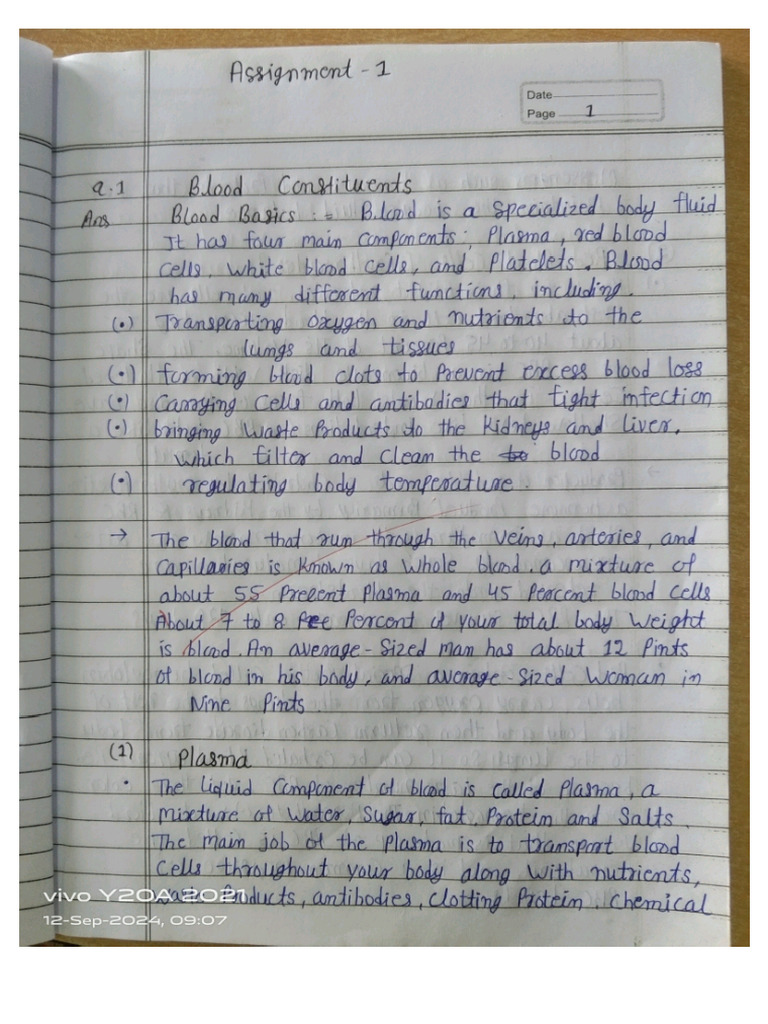 Assignment - 1
Date
Page 1
Q.1 Blood Constituents
Ans Blood Basics := Blood is a specialized body fluid
It has four main components; Plasma, red blood
cells, white blood cells, and Platelets. Blood
has many different functions, including.
(•) Transporting oxygen and nutrients to the
lungs and tissues
(•) forming blood clots to Prevent excess blood loss
(•) Carrying cells and antibodies that fight infection
(•) bringing waste Products to the kidneys and liver,
which filter and clean the blood
(•) regulating body temperature.
→ The blood that run through the veins, arteries, and
Capillaries is known as whole blood. a mixture of
about 55 Precent Plasma and 45 Percent blood cells
About 7 to 8 Percent of your total body weight
is blood. An average-sized man has about 12 Pints
of blood in his body, and average-sized woman in
Nine Pints
(1) Plasma
• The liquid component of blood is called Plasma, a
mixture of water, Sugar, fat, Protein and Salts.
The main job of the Plasma is to transport blood
cells throughout your body along with nutrients,
Products, antibodies, clotting Protein. chemical
vivo Y20A 2021
12-Sep-2024, 09:07